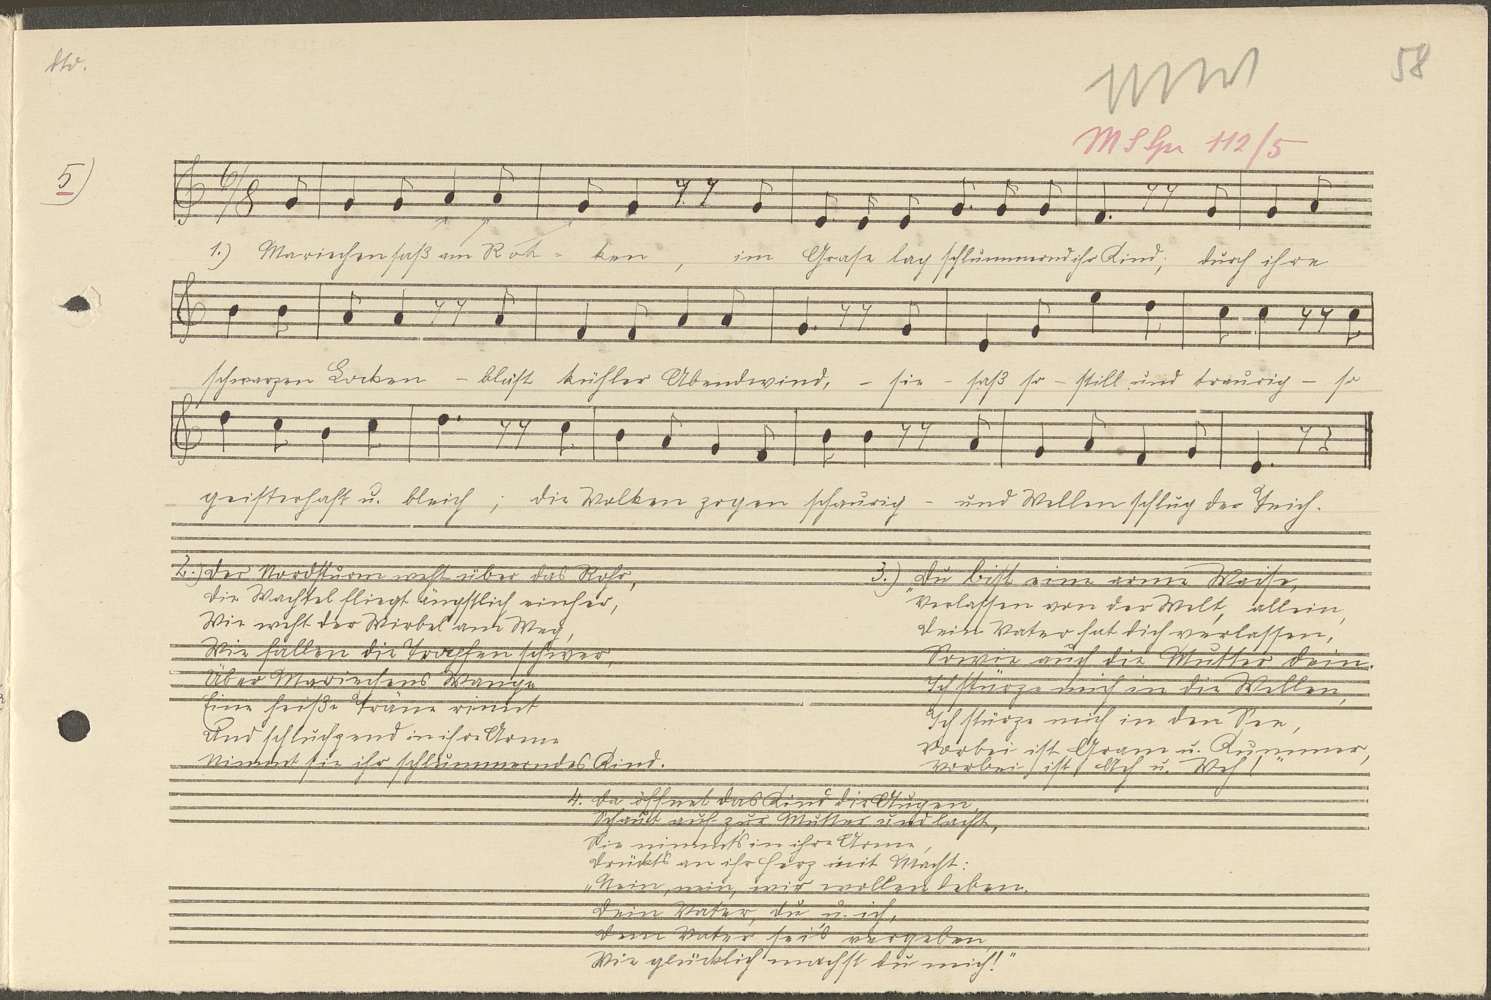 58
112/5
5)
6/8
1.) Mariechen saß am Rok - ken, im Grase lag schlummernd ihr Kind; durch ihre
schwarzen Locken - bläst kühler Abendwind, - sie - saß so - still und traurig - so
geisterhaft u. bleich; die Wolken zogen schaurig - und Wellen schlug der Teich.
2.) Der Nordsturm weht über das Rohr,
Die Wachtel fliegt ängstlich einher,
Wie weht der Wirbel am Weg,
Wie fallen die Tropfen schwer,
Über Mariechens Wange
Eine heiße Träne rinnt
Und schluchzend in ihre Arme
Nimmt sie ihr schlummerndes Kind.
3.) "Du bist eine arme Waise,
Verlassen von der Welt, allein,
Dein Vater hat dich verlassen,
Sowie auch die Mutter dein.
Ich stürze mich in die Wellen,
Ich stürze mich in den See,
Vorbei ist Gram u. Kummer,
Vorbei (ist) Ach u. Weh!"
4. Da öffnet das Kind die Augen,
Schaut auf zur Mutter und lacht,
Sie nimmt's in ihre Arme,
Drückt's an ihr Herz mit Macht:
"Nein, nein, wir wollen leben.
Dein Vater, du u. ich,
Dem Vater sei's vergeben,
Wie glücklich machst du mich!"